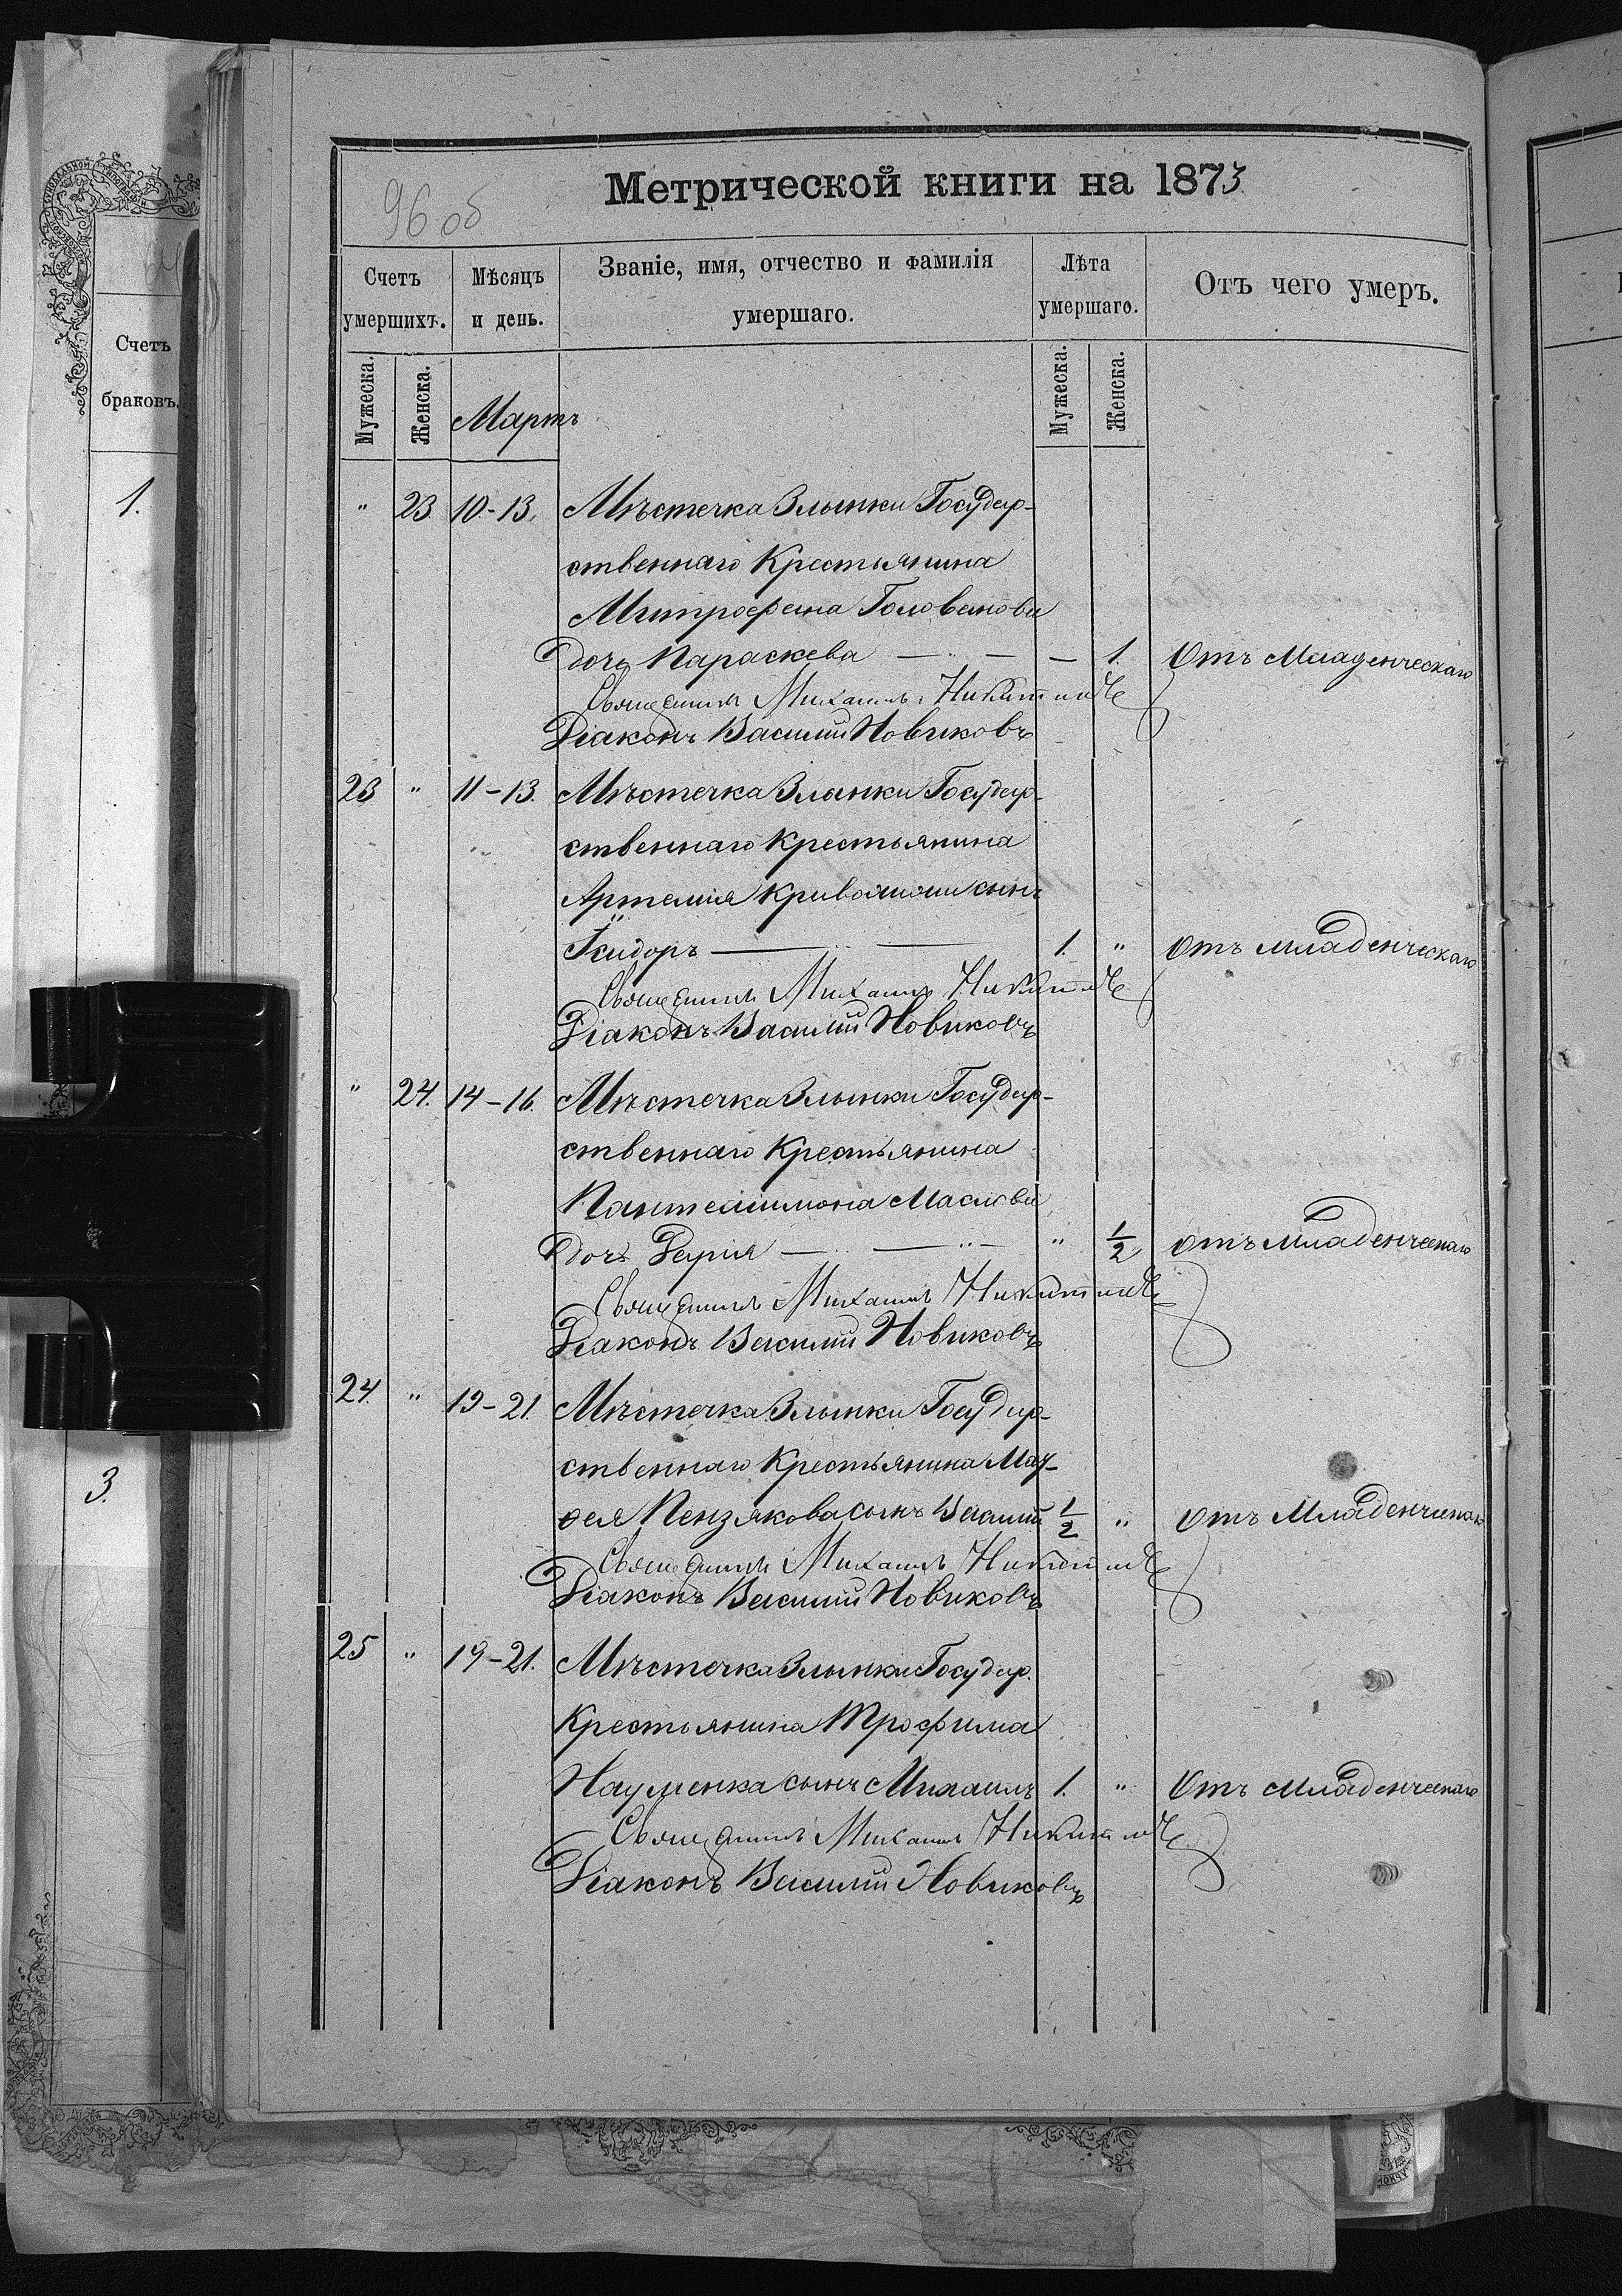 Метрической книги на 1873
96 об
Счетъ умершихъ. Мѣсяцъ и день. Званіе, имя, отчество и фамилія умершаго. Лѣта умершаго. Отъ чего умеръ.
Мужеска. Женска. Мартъ Мужеска. Женска.
" 23. 10-13. Мѣстечка Злынки Государ-
ственнаго Крестьянина
Митрофана Голованова
Дочь Параскева — " — — 1. Отъ Младенческаго
Священникъ Михаилъ Никитинъ
Діаконъ Василій Новиковъ
23 " 11-13. Мѣстечка Злынки Государ-
ственнаго Крестьянина
Артемія сынъ
Ісидоръ — " — 1. " Отъ младенческаго
Священникъ Михаилъ Никитинъ
Діаконъ Василій Новиковъ
" 24. 14-16. Мѣстечка Злынки Государ-
ственнаго Крестьянина
Пантелиимона Маслова
Дочь — " — " — " 1/2 отъ Младенческаго
Священникъ Михаилъ Никитинъ
Діаконъ Василій Новиковъ
24. " 19-21. Мѣстечка Злынки Государ-
ственнаго Крестьянина Мат-
ѳея Пензякова сынъ Василій 1/2 " Отъ Младенческаго
Священникъ Михаилъ Никитинъ
Діаконъ Василій Новиковъ
25 " 19-21. Мѣстечка Злынки Государ.
Крестьянина Трофима
Науменка сынъ Михаилъ 1. " Отъ Младенческаго
Священникъ Михаилъ Никитинъ
Діаконъ Василій Новиковъ
Счетъ
браковъ.
1.
3.